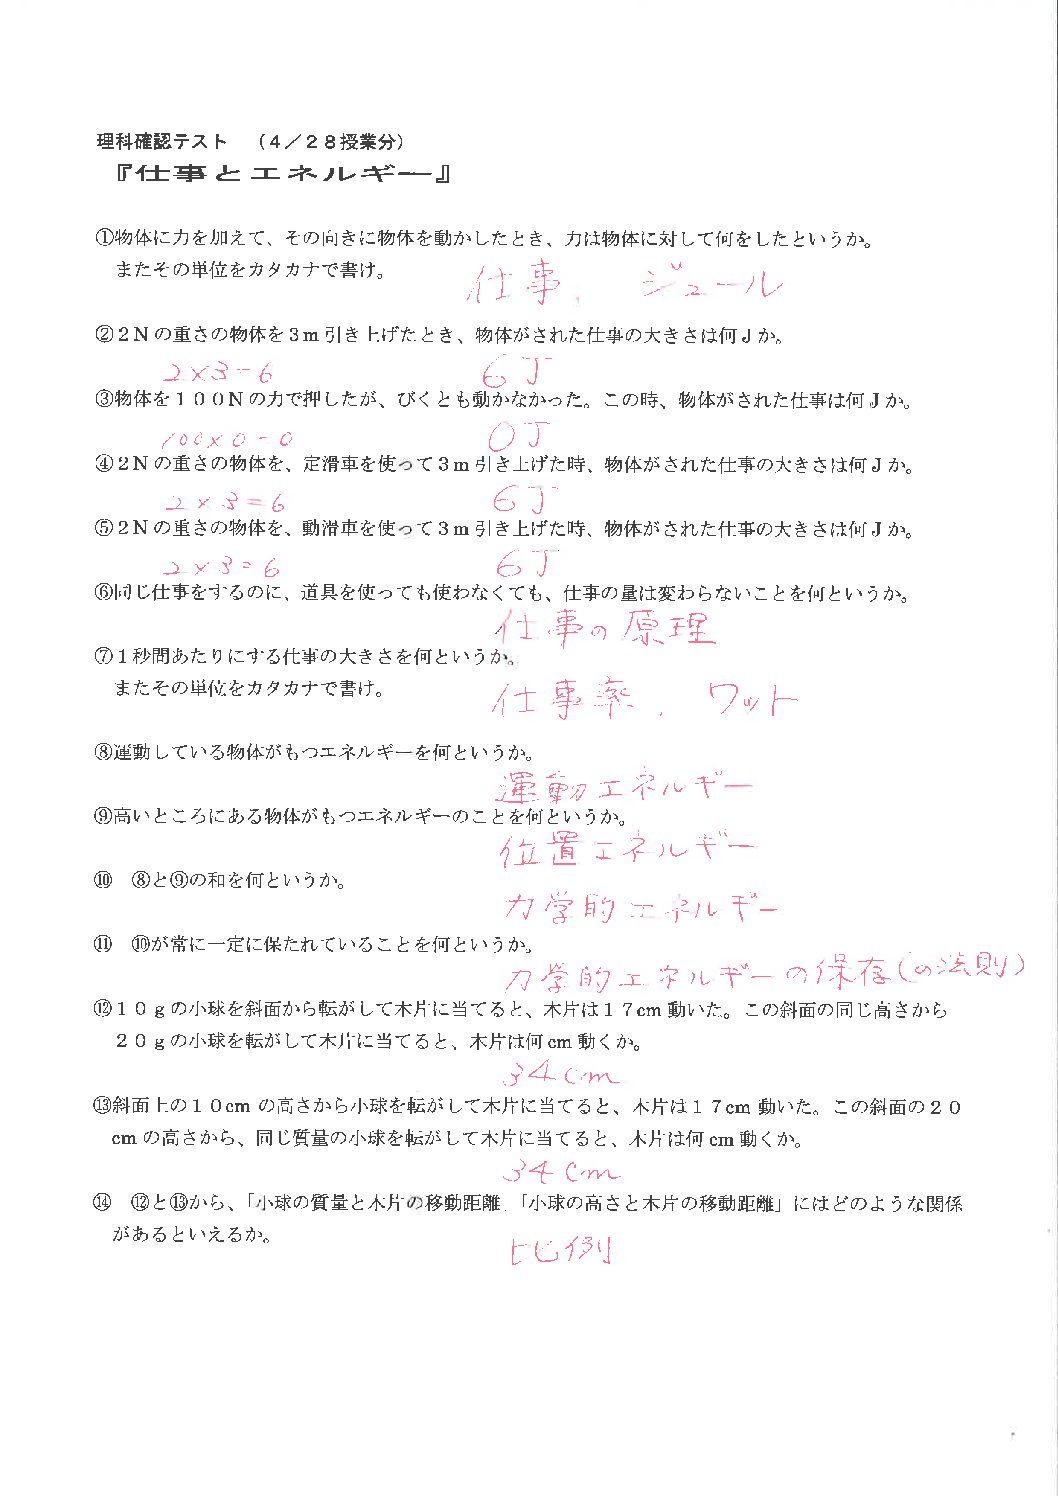 理科確認テスト　（４／２８授業分）
『仕事とエネルギー』
①物体に力を加えて、その向きに物体を動かしたとき、力は物体に対して何をしたというか。
またその単位をカタカナで書け。
仕事、　ジュール
②２Ｎの重さの物体を３ｍ引き上げたとき、物体がされた仕事の大きさは何Ｊか。
2×3=6　6J
③物体を１００Ｎの力で押したが、びくとも動かなかった。この時、物体がされた仕事は何Ｊか。
100×0=0　0J
④２Ｎの重さの物体を、定滑車を使って３ｍ引き上げた時、物体がされた仕事の大きさは何Ｊか。
2×3=6　6J
⑤２Ｎの重さの物体を、動滑車を使って３ｍ引き上げた時、物体がされた仕事の大きさは何Ｊか。
2×3=6　6J
⑥同じ仕事をするのに、道具を使っても使わなくても、仕事の量は変わらないことを何というか。
仕事の原理
⑦１秒間あたりにする仕事の大きさを何というか。
またその単位をカタカナで書け。
仕事率、　ワット
⑧運動している物体がもつエネルギーを何というか。
運動エネルギー
⑨高いところにある物体がもつエネルギーのことを何というか。
位置エネルギー
⑩　⑧と⑨の和を何というか。
力学的エネルギー
⑪　⑩が常に一定に保たれていることを何というか。
力学的エネルギーの保存(の法則)
⑫１０ｇの小球を斜面から転がして木片に当てると、木片は１７cm動いた。この斜面の同じ高さから
２０ｇの小球を転がして木片に当てると、木片は何cm動くか。
34cm
⑬斜面上の１０cmの高さから小球を転がして木片に当てると、木片は１７cm動いた。この斜面の２０
cmの高さから、同じ質量の小球を転がして木片に当てると、木片は何cm動くか。
34cm
⑭　⑫と⑬から、「小球の質量と木片の移動距離」「小球の高さと木片の移動距離」にはどのような関係
があるといえるか。
比例